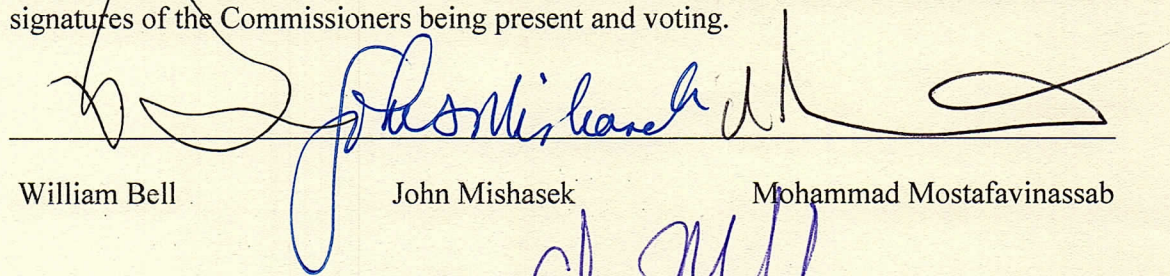 signatures of the Commissioners being present and voting.
John Mishasek
William Bell John Mishasek Mohammad Mostafavinassab